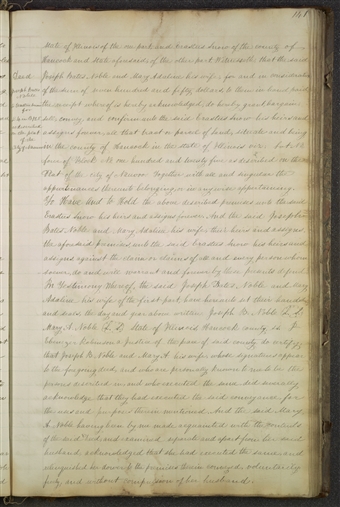 State of Illinois of the one part and Erastus Snow of the county of
Hancock and State aforesaid of the other part Witnesseth that the said
Deed Joseph Bates Noble and Mary Adaline his wife, for and in consideration
of the sum of seven hundred and fifty dollars to them in hand paid
the receipt whereof is hereby acknowledged, do hereby grant bargain
sell, convey, and confirm unto the said Erastus Snow his heirs and
assigns forever all that tract or parcel of land, situate and being
in the county of Hancock in the State of Illinois viz. Lot No
four of Block No one hundred and twenty five as described in the
Plat of the city of Nauvoo Together with all and singular the
appurtenances thereunto belonging or in any wise appertaining.
To Have and to Hold the above described premises unto the said
Erastus Snow his heirs and assigns forever. And the said Joseph
Bates Noble and Mary Adaline his wife, their heirs and assigns
the aforesaid premises unto the said Erastus Snow his heirs and
assigns against the claim or claims of all and every person whom
soever, do and will warrant and forever by these presents defend
In Testimony Whereof, the said Joseph Bates Noble and Mary
Adaline his wife of the first part have hereunto set their hands
and seals the day and year above written Joseph B. Noble L.S.
Mary A. Noble L.S. State of Illinois Hancock county ss I
Robinson a Justice of the peace of said county do certify
that Joseph B. Noble and Mary A. his wife whose signatures appear
to the foregoing deed, and who are personally known to me to be the
persons described in and who executed the same did severally
acknowledge that they had executed the said conveyance for
the uses and purposes therein mentioned And the said Mary
A. Noble having been by me made acquainted with the contents
of the said Deed, and examined separate and apart from her said
husband acknowledged that she had executed the same and
relinquished her dower to the premises therein conveyed voluntarily
freely and without compulsion of her husband.